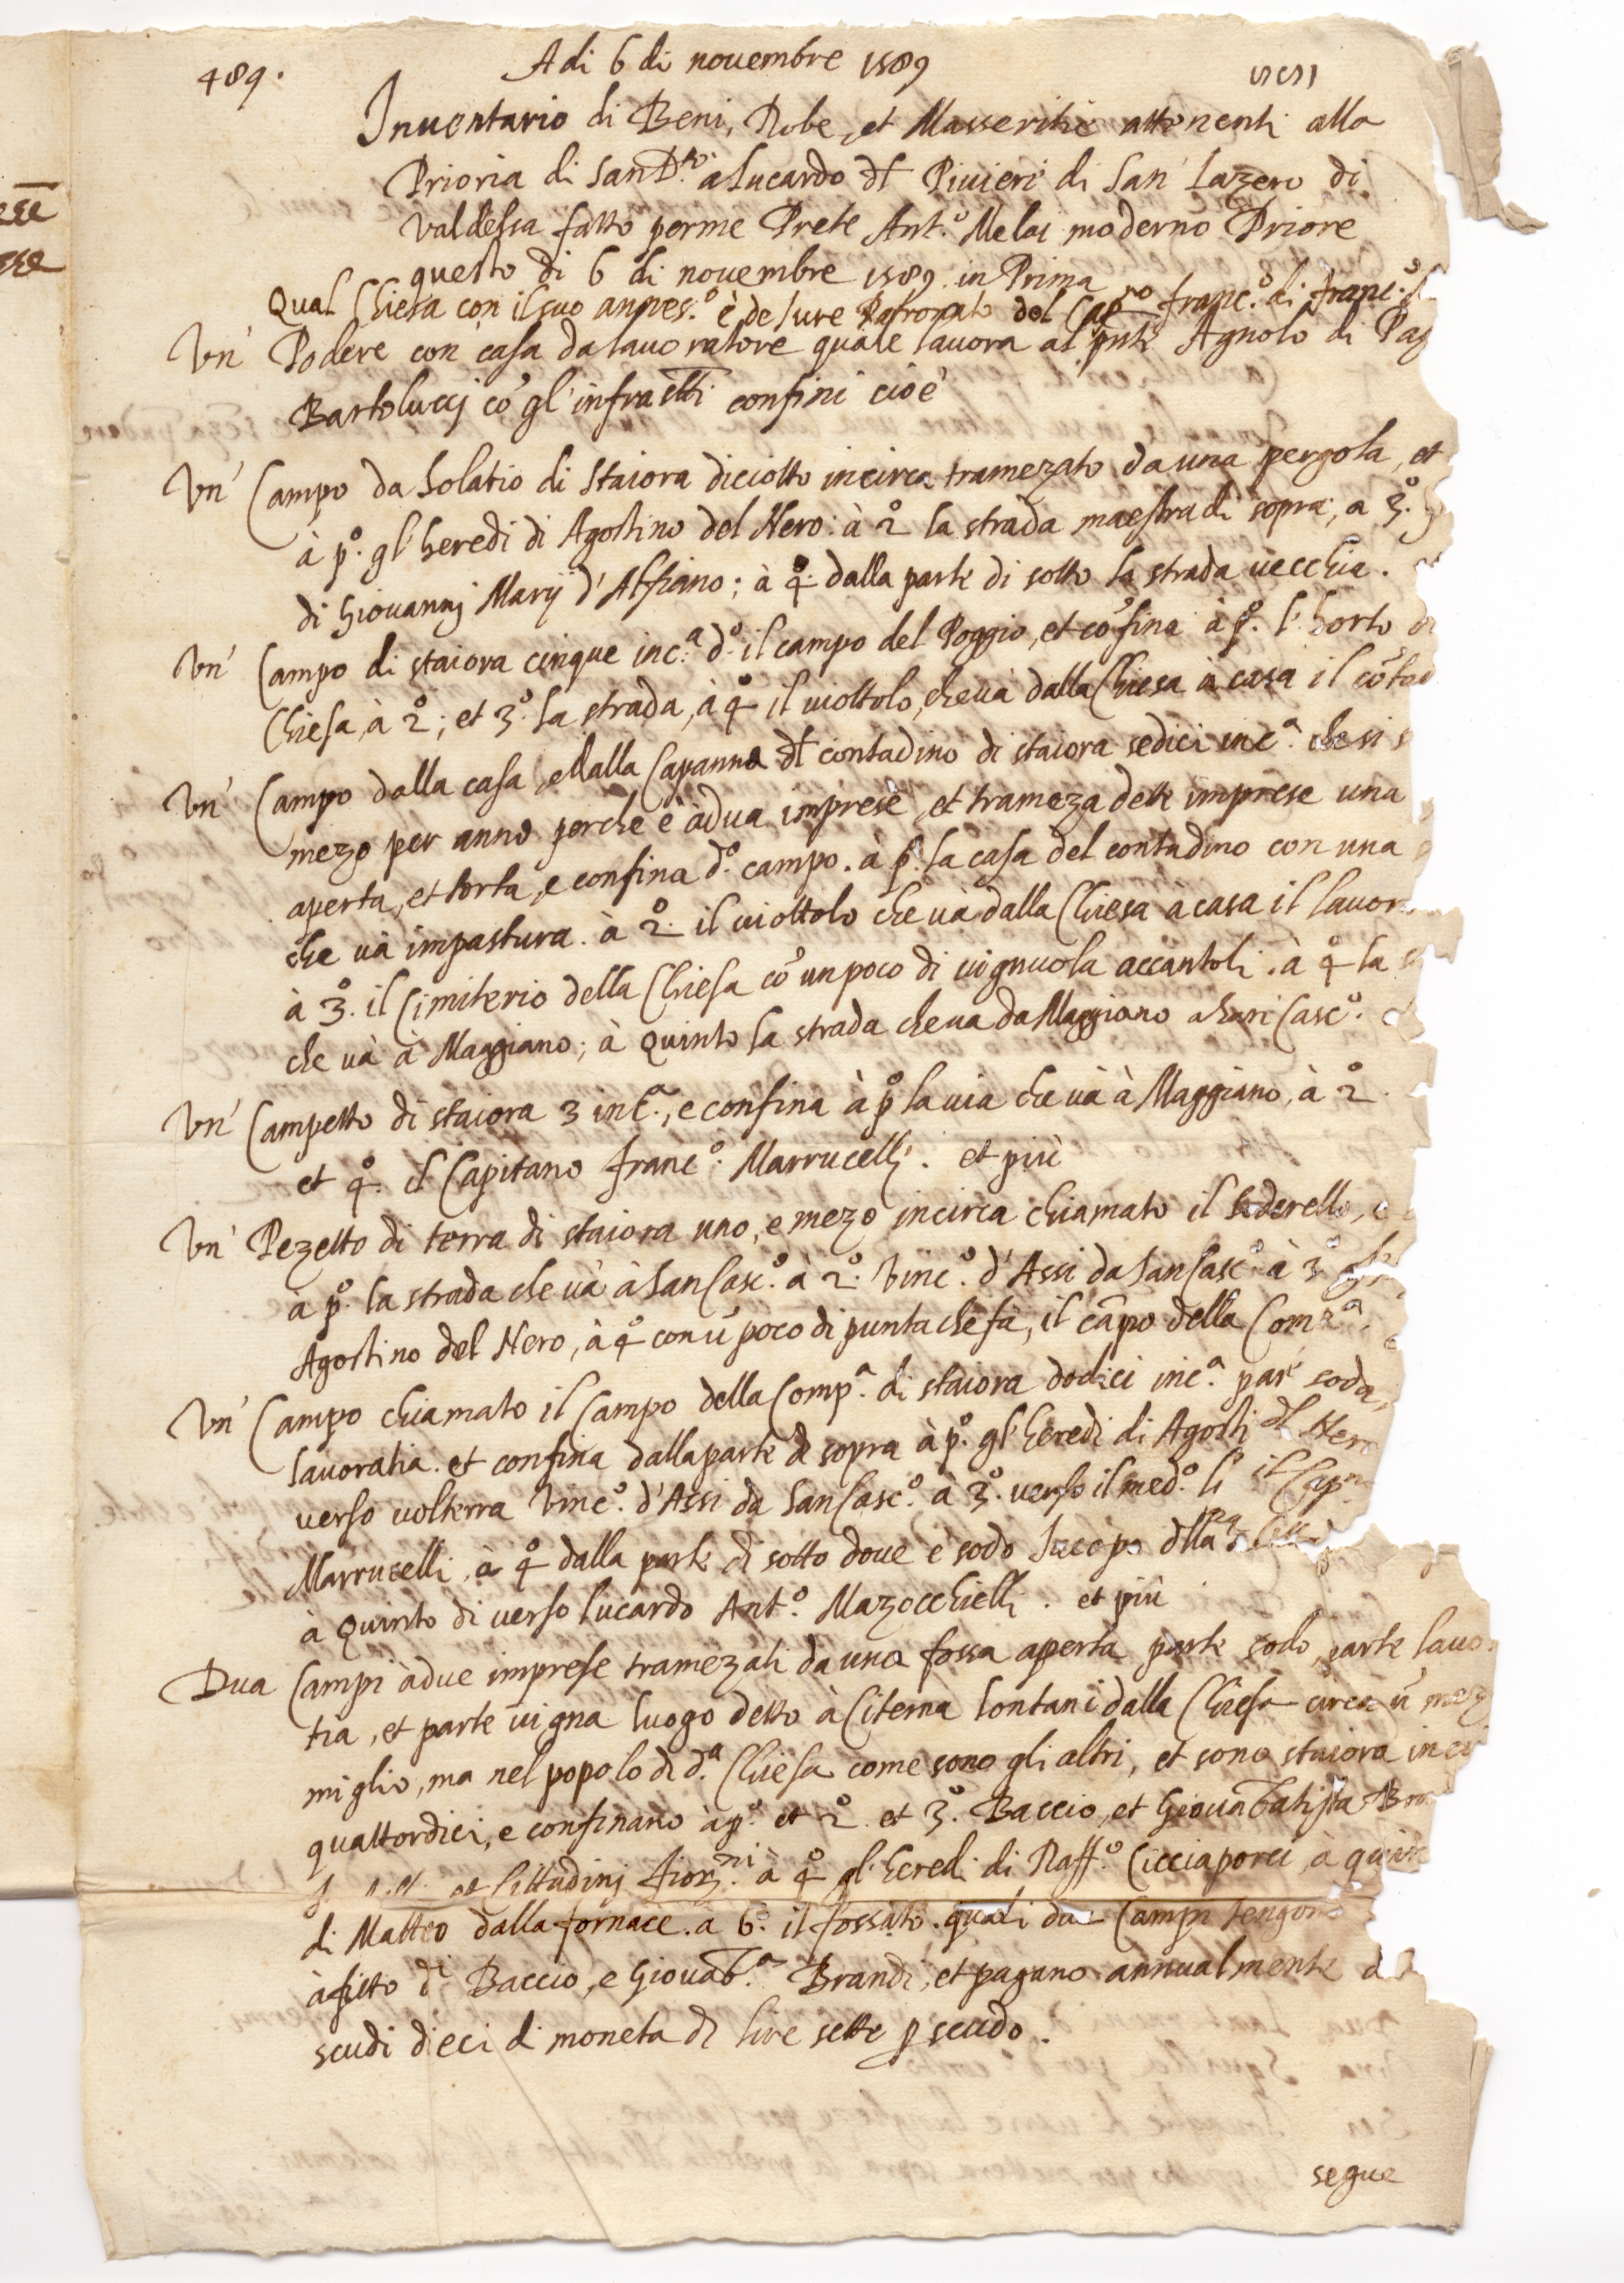 489.
Adi 6 di nouembre 1589
Inuentario di Beni, Robe, et Masseritie attenenti alla
Prioria di San D.to à Lucardo dł Piuieri di San Lazero di
Valdelsa fatto per me Prete Ant.º Meloi moderno Priore
questo di 6 di nouembre 1589. in Prima
Qual Chiesa con il suo annes.º è de Iure Patronato del Cap.no franc.º di franc.º
Vn' Podere con casa da lauoratore quale lauora al pnte Agnolo di Pag
Bartolucci cō gl'infratti confini cioè
Vn' Campo da Solatio di Staiora diciotto incirca tramezato da una pergola, et
à pº. gl'heredi di Agostino del Nero: à 2º la strada maestra di sopra, a 3º.
di Giouannj Marij d'Alfiano; à 4º. dalla parte di sotto la strada uecchia.
Vn' Campo di staiora cinque inc.ª d.º il campo del Poggio, et cōfina à pº. l'horto
Chiesa, à 2º; et 3º. la strada, à 4º il uiottolo, che uà dalla Chiesa à casa il cōtad
Vn' Campo dalla casa, e dalla Capanna dł contadino di staiora sedici inc.ª che si s
mezo per anno perche è à dua imprese, et trameza dette imprese una
aperta, et torta, e confina d.º campo. à pº. la casa del contadino con una
che uà impastura. à 2º. il uiottolo che uà dalla Chiesa à casa il lauor
à 3º. il Cimiterio della Chiesa cō un poco di uignuola accantoli. à 4º la s
che uà à Maggiano; à Quinto la strada che ua da Maggiano a San Casc.º.
Vn' Campetto di staiora 3 inc.ª, e confina à pº la uia che uà à Maggiano, à 2º.
et 4º. il Capitano franc.º. Marrucelli. et più
Vn' Pezetto di terra di staiora uno, e mezo incirca chiamato il Poderello,
à pº. la strada che uà à San Casc.º. à 2º. Vinc.º. d'Assi da San Casc.º à 3º
Agostino del Nero, à 4º con ū poco di punta che fà, il cāpo della Comp.ª
Vn' Campo chiamato il Campo della Comp.ª di staiora dodici inc.ª par soda
lauoratia. et confina dalla parte di sopra à pº. gl'heredi di Agosti dł Nero
verso volterra Vinc.º. d'Assi da San Casc.º. à 3º. verso il med.º li il Cap.no
Marrucelli, à 4º dalla parte di sotto doue è sodo Iacopo dlla
à Quinto di uerso lucardo Ant.º. Mazocchielli. et più
Dua Campi à due imprese tramezati da una fossa aperta parte sodo, parte lauo
tia, et parte uigna luogo detto à Citerna lontani dalla Chiesa circa ū mez
miglio, ma nel popolo di d.ª Chiesa come sono gli altri, et sono staiora in ci
quattordici, e confinano à pº. et 2º. et 3º. Baccio, et Giouābatista Bra
et Cittadinj fior.ni à 4º gl'heredi di Raff.º Cicciaporci, à quin
di Matteo dalla fornace. à 6º. il fossato. quali dua Campi tengono
à fitto di Baccio, e Giouāb.ª Brandi, et pagano annualmente
scudi dieci di moneta di lire sette p scudo.
segue